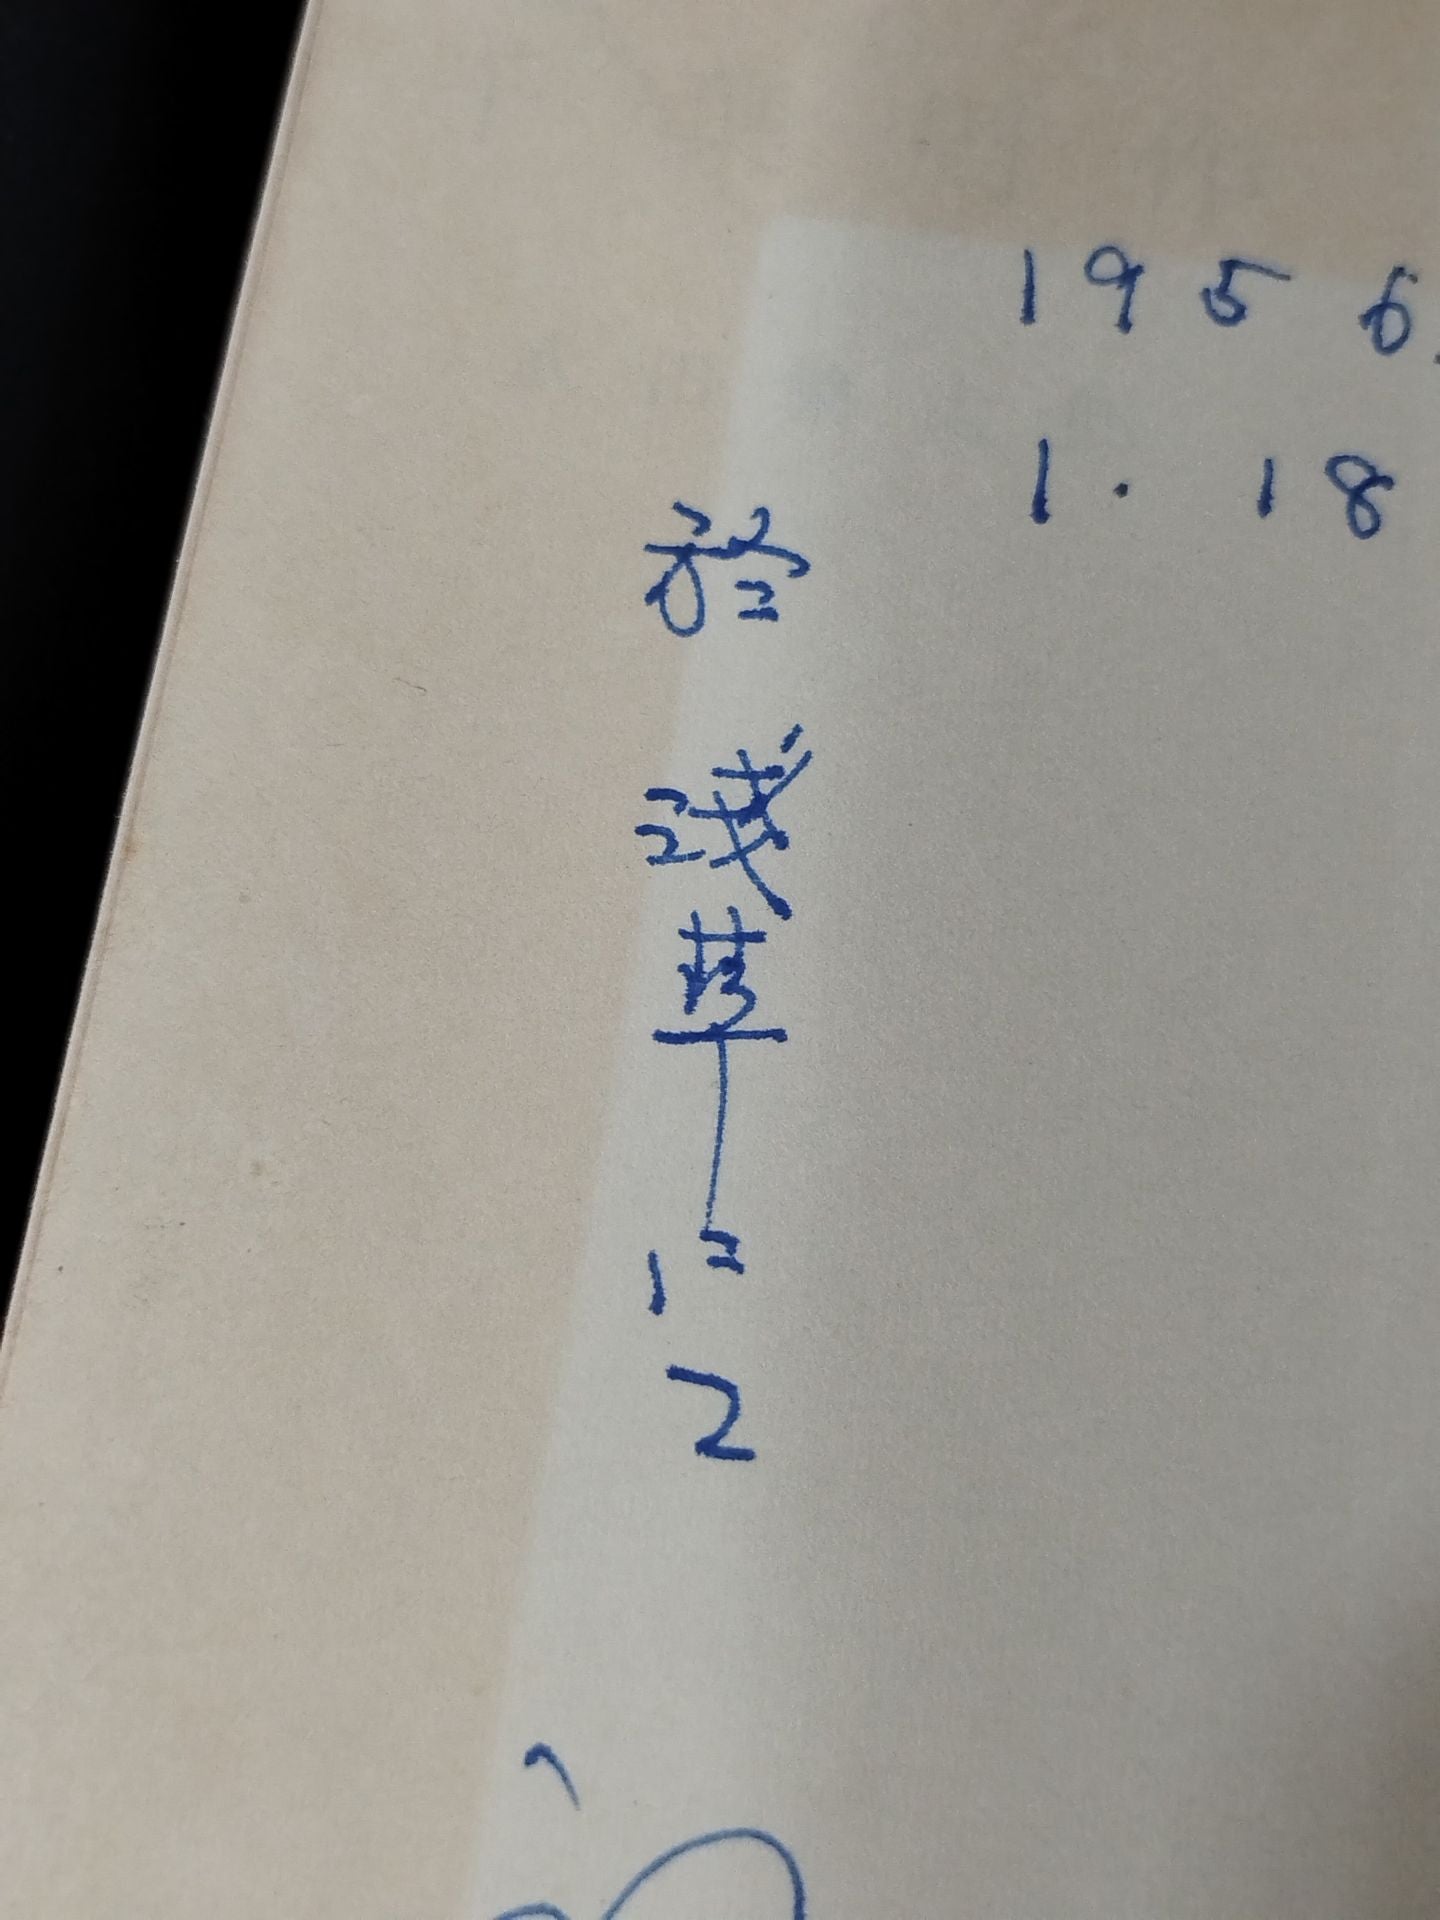 1956.
1.18
於 淺草にて